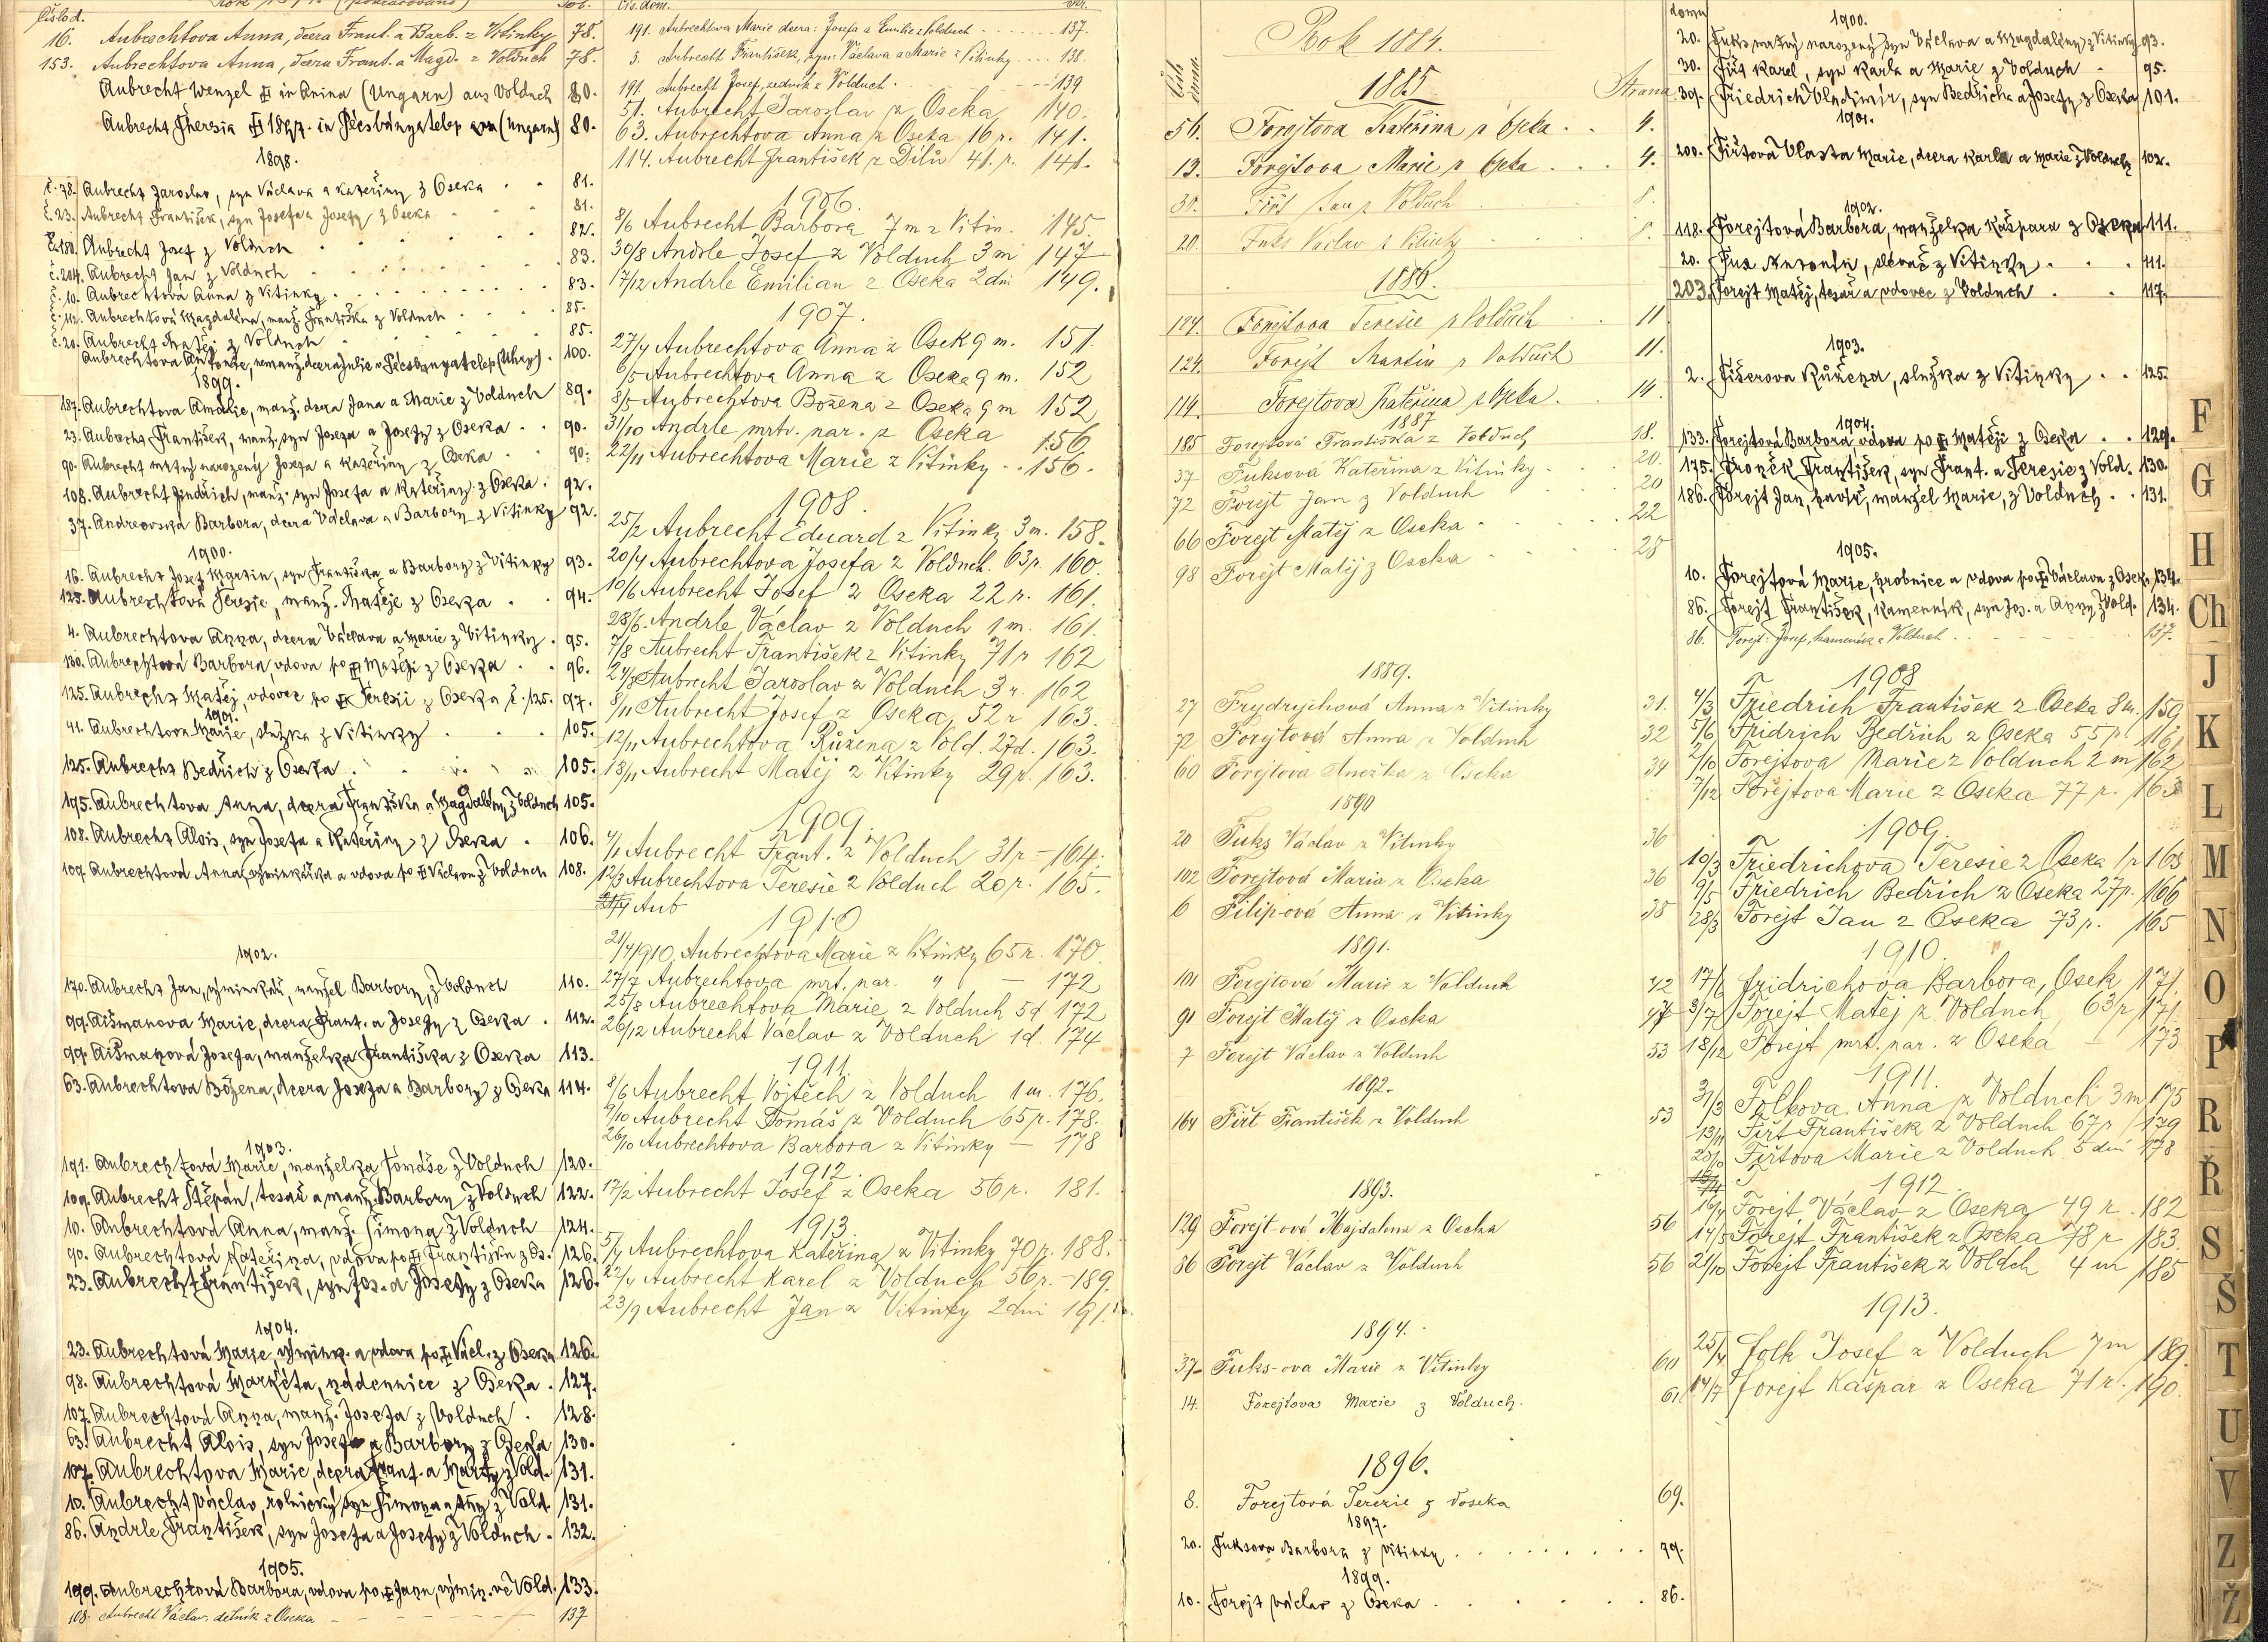 16. Aubrechtova Anna, dcera Frant. a Barb. z Vitinky 78.
153. Aubrechtova Anna, dcera Frant. a Magd. z Volduch 78.
Aubrecht Wenzel in Anina (Ungarn) aus Volduch 80.
Aubrecht Theresia 1897. in Pécsbányatelep (Ungarn) 80.
1898.
č. 78. Aubrecht Jaroslav, syn Václava a Kateřiny z Oseka 81.
č. 23. Aubrecht František, syn Josefa a Josefy z Oseka 81.
č. 180. Aubrecht Josef z Volduch 82.
č. 204. Aubrecht Jan z Volduch 83.
č. 10. Aubrechtová Anna z Vitinky 83.
č. 112. Aubrechtová Magdaléna, manž. Františka z Volduch 85.
č. 20. Aubrecht Matěj z Volduch 85.
Aubrechtova Antonie, nemanž. dcera Julie v Pécsbanyatelep (Uhry) 100.
1899.
187. Aubrechtova Amalie, manž. dcera Jana a Marie z Volduch 89.
23. Aubrecht František, manž. syn Josefa a Josefy z Oseka 90.
90. Aubrecht mrtvý narozený Josefa a Kateřiny z Oseka 90.
108. Aubrecht Jindřich, manž. syn Josefa a Kateřiny z Oseka 92.
37. Andreovská Barbora, dcera Václava a Barbory z Vitinky 92.
1900.
16. Aubrecht Josef Martin, syn Františka a Barbory z Vitinky 93.
125. Aubrechtová Teresie, manž. Matěje z Oseka 94.
4. Aubrechtova Anna, dcera Václava a Marie z Vitinky 95.
130. Aubrechtová Barbora, vdova po Matěji z Oseka 96.
125. Aubrecht Matěj, vdovec po Teresii z Oseka č. 125. 97.
1901.
41. Aubrechtova Marie, služka z Vitinky 105.
125. Aubrecht Bedřich z Oseka 105.
195. Aubrechtova Anna, dcera Františka a Magdalény z Volduch 105.
108. Aubrecht Alois, syn Josefa a Kateřiny z Oseka 106.
109. Aubrechtová Anna, výminkářka a vdova po Václavu z Volduch 108.
1902.
170. Aubrecht Jan, výminkář, manžel Barbory, z Volduch 110.
99. Aišmanova Marie, dcera Frant. a Josefy z Oseka 112.
99. Aišmanová Josefa, manželka Františka z Oseka 113.
63. Aubrechtova Božena, dcera Josefa a Barbory z Oseka 114.
1903.
191. Aubrechtová Marie, manželka Tomáše z Volduch 120.
109. Aubrecht Štěpán, tesař a manž. Barbory z Volduch 122.
10. Aubrechtová Anna, manž. Šimona z Volduch 124.
90. Aubrechtová Kateřina, vdova po Františku z Os. 126.
23. Aubrecht František, syn Jos. a Josefy z Oseka 126.
1904.
23. Aubrechtová Marie, výmink. a vdova po Václ. z Oseka 126.
98. Aubrechtová Markéta, nádennice z Oseka 127.
107. Aubrechtová Anna, manž. Josefa z Volduch 128.
63. Aubrecht Alois, syn Josefa a Barbory z Oseka 130.
107. Aubrechtova Marie, dcera Frant. a Marty z Vold. 131.
10. Aubrecht Václav, rolnický syn Šimona z Vold. 131.
86. Andrle František, syn Josefa a Josefy z Volduch 132.
1905.
199. Aubrechtová Barbora, vdova po Janu, výmin. ve Vold. 133.
108. Aubrecht Václav, dělník z Oseka 137
191. Aubrechtova Marie dcera: Josefa a Emilie z Volduch 137.
5. Aubrecht František, syn: Václava a Marie z Vitinky 138.
191. Aubrecht Josef, zedník z Volduch 139
51. Aubrecht Jaroslav z Oseka 140.
63. Aubrechtova Anna z Oseka 16 r. 141.
114. Aubrecht František z Dílů 41. r. 141.
1906.
8/6 Aubrecht Barbora 7 m z Vitin. 145.
30/8 Andrle Josef z Volduch 3 m 147
17/12 Andrle Emilian z Oseka 2 dni 149.
1907.
27/4 Aubrechtova Anna z Osek 9 m. 151.
6/5 Aubrechtova Anna z Oseka 9 m. 152
8/5 Aubrechtova Božena z Oseka 9 m 152
31/10 Andrle mrtv. nar. z Oseka 156
22/11 Aubrechtova Marie z Vitinky 156.
1908.
25/2 Aubrecht Eduard z Vitinky 3 m. 158.
20/4 Aubrechtova Josefa z Volduch. 63 r. 160.
10/6 Aubrecht Josef z Oseka 22 r. 161.
28/6 Andrle Václav z Volduch 1 m. 161.
7/8 Aubrecht František z Vitinky 71 r 162
24/8 Aubrecht Jaroslav z Volduch 3 r. 162
8/11 Aubrecht Josef z Oseka, 52 r 163.
12/11 Aubrechtova Růžena z Vold. 27 d. 163.
18/11 Aubrecht Matěj z Vitinky 29 r. 163.
1909.
4/1 Aubrecht Frant. z Volduch 31 r - 164.
12/3 Aubrechtova Teresie z Volduch 20 r. 165.
Aub
1910
21/4 1910 Aubrechtova Marie z Vitinky 65 r. 170.
27/7 Aubrechtova mrt. nar. " — 172
25/8 Aubrechtova Marie z Volduch 5 d 172
26/12 Aubrecht Václav z Volduch 1 d. 174
1911.
8/6 Aubrecht Vojtěch z Volduch 1 m. 176.
9/10 Aubrecht Tomáš z Volduch 65 r. 178.
26/10 Aubrechtova Barbora z Vitinky — 178
1912.
17/2 Aubrecht Josef z Oseka 56 r. 181.
1913
5/4 Aubrechtova Kateřina z Vitinky 70 r. 188.
22/4 Aubrecht Karel z Volduch 56 r. - 189.
23/9 Aubrecht Jan z Vitinky 2 dni 191.
Rok 1884.
1885
Strana
56. Forejtova Kateřina z Oseka 4.
13. Forejtova Marie z Oseka 4.
30. Fiřt Jan z Volduch 8.
20. Fuks Václav z Vitinky
1886.
124. Forejtova Teresie z Volduch 11
124. Forejt Martin z Volduch 11.
114. Forejtova Kateřina z Oseka. 14.
1887
185 Forejtová Františka z Volduch 18.
37 Fuksová Kateřina z Vitinky 20.
72 Forejt Jan z Volduch 20
66 Forejt Matěj z Oseka 22
98 Forejt Matěj z Oseka 28
1889.
27 Frydrychová Anna z Vitinky 31.
72 Forejtová Anna z Volduch 32
60 Forejtová Anežka z Oseka 34
1890
20 Fuks Václav z Vitinky 36
102 Forejtová Maria z Oseka 36
6 Filip-ová Anna z Vitinky 38
1891.
101 Forejtová Marie z Volduch 42
91 Forejt Matěj z Oseka 47
7 Forejt Václav z Volduch 53
1892.
164 Fiřt František z Volduch 53
1893.
129 Forejt-ová Majdalena z Oseka 56
86 Forejt Václav z Volduch 56
1894.
37 Fuks-ova Marie z Vitinky 60
14. Forejtova Marie z Volduch. 61.
1896.
8. Forejtová Terezie z Voseka 69.
1897.
20. Fuksova Barbora z Vitinky 79.
1899.
10. Forejt Václav z Oseka 86.
domu
1900.
20. Fuks mrtvý narozený syn Václava a Magdalény z Vitinky 93.
30. Fiřt Karel, syn Karla a Marie z Volduch 95.
39. Friedrich Vladimír, syn Bedřicha a Josefy z Oseka 101.
1901.
200. Fiřtová Vlasta Marie, dcera Karla a Marie z Volduch 102.
1902.
118. Forejtová Barbora, manželka Kašpara z Oseka 111.
20. Fux Antonín, slevač z Vitinky 111.
203. Forejt Matěj, tesař a vdovec z Volduch 117.
1903.
2. Fišerova Růžena, služka z Vitinky 125.
1904.
133. Forejtová Barbora, vdova po Matěji z Oseka 129.
175. Froněk František, syn Frant. a Teresie z Vold. 130.
186. Forejt Jan, havíř, manžel Marie, z Volduch 131.
1905.
10. Forejtová Marie, hrobnice a vdova po Václavu z Oseka 134.
86. Forejt František, kamenník, syn Jos. a Anny z Vold. 134.
86. Forejt: Josef, kameník z Volduch 137.
1908
4/3 Friedrich František z Oseka 159
5/6 Fridrich Bedřich z Oseka 55 r
7/10 Forejtova Marie z Volduch 2 m 162
7/12 Forejtova Marie z Oseka 77 r. 163
1909.
10/3 Friedrichova Teresie z Oseka 1 r 165
9/5 Friedrich Bedřich z Oseka 27 r. 166
28/3 Forejt Jan z Oseka 73 r. 165
1910.
17/6 Fridrichova Barbora, Osek 171.
3/7 Forejt Matěj z Volduch 63 r 171.
18/12 Forejt mrt. nar. z Oseka — 173
1911.
31/3 Folkova Anna z Volduch 3 m 175
13/11 Fiřt František z Volduch 67 r 179
Fiřtova Marie z Volduch 5 dní 178
1912.
19/4 Forejt Václav z Oseka 49 r. 182
14/5 Forejt František z Oseka 78 r 183.
21/10 Forejt František z Voldch 4 m 185
1913.
25/4 Folk Josef z Volduch 7 m 189.
17/7 Forejt Kašpar z Oseka 71 r. 190.
F
G
H
Ch
J
K
L
M
N
O
P
R
Ř
S
Š
T
U
V
Z
Ž